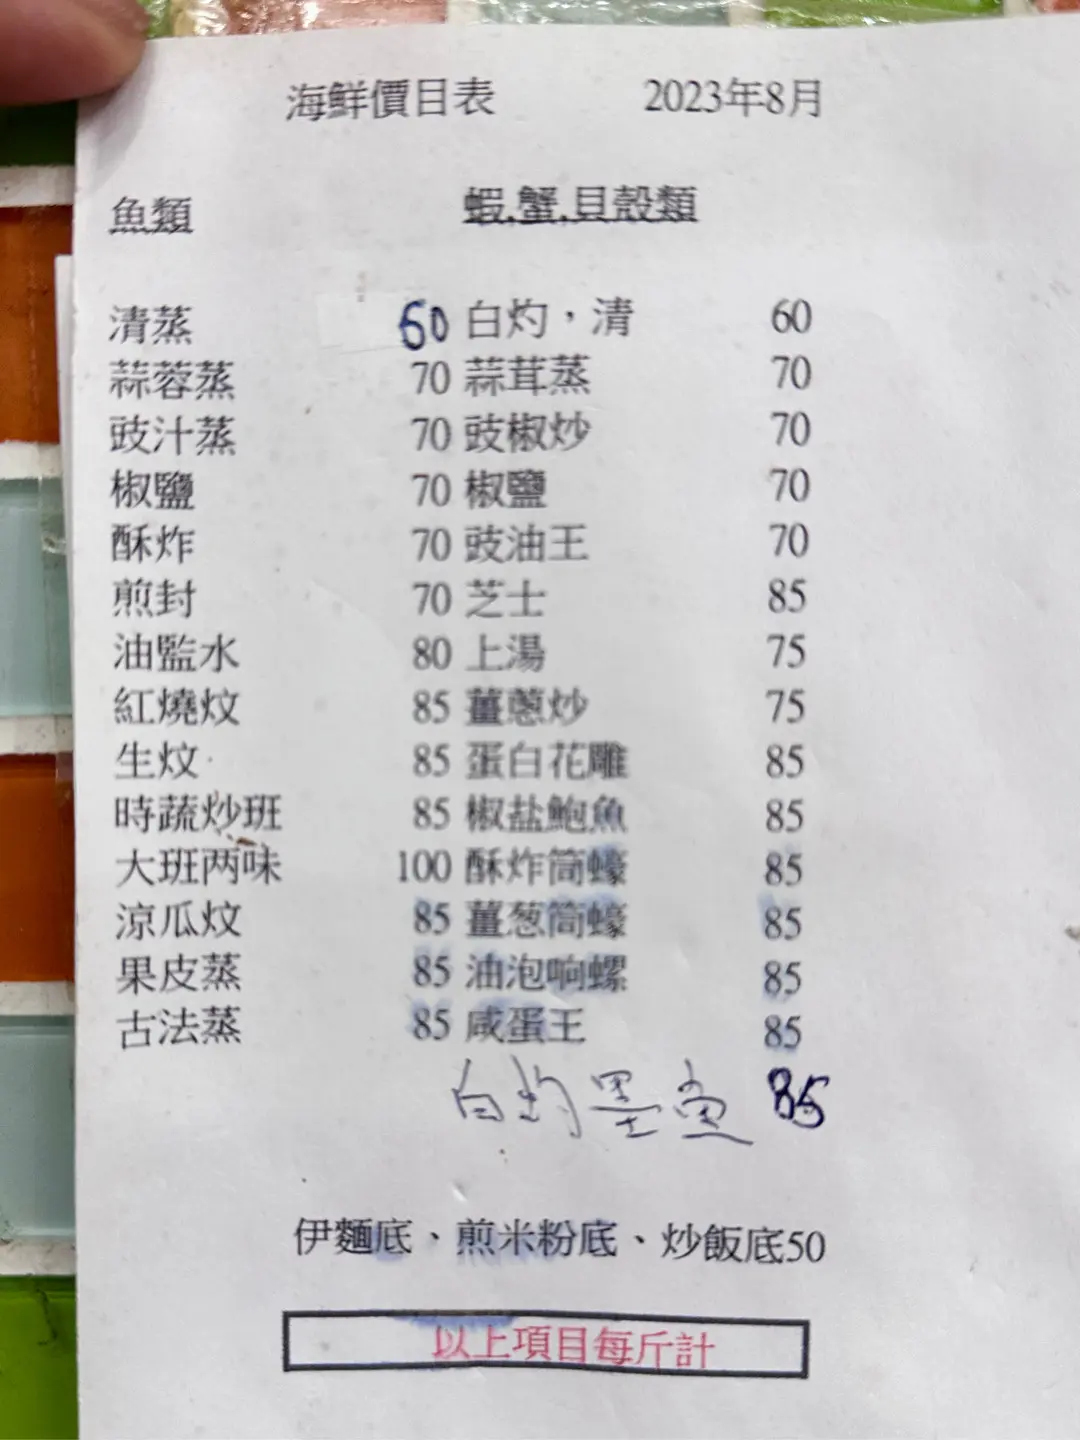 海鮮價目表 2023年8月
魚類 蝦.蟹.貝殼類
清蒸 60 白灼，清 60
蒜蓉蒸 70 蒜茸蒸 70
豉汁蒸 70 豉椒炒 70
椒鹽 70 椒鹽 70
酥炸 70 豉油王 70
煎封 70 芝士 85
油監水 80 上湯 75
紅燒炆 85 薑蔥炒 75
生炆 85 蛋白花雕 85
時蔬炒班 85 椒盐鮑魚 85
大班两味 100 酥炸筒蠔 85
涼瓜炆 85 薑葱筒蠔 85
果皮蒸 85 油泡响螺 85
古法蒸 85 咸蛋王 85
白灼墨魚 85
伊麵底、煎米粉底、炒飯底50
以上項目每斤計